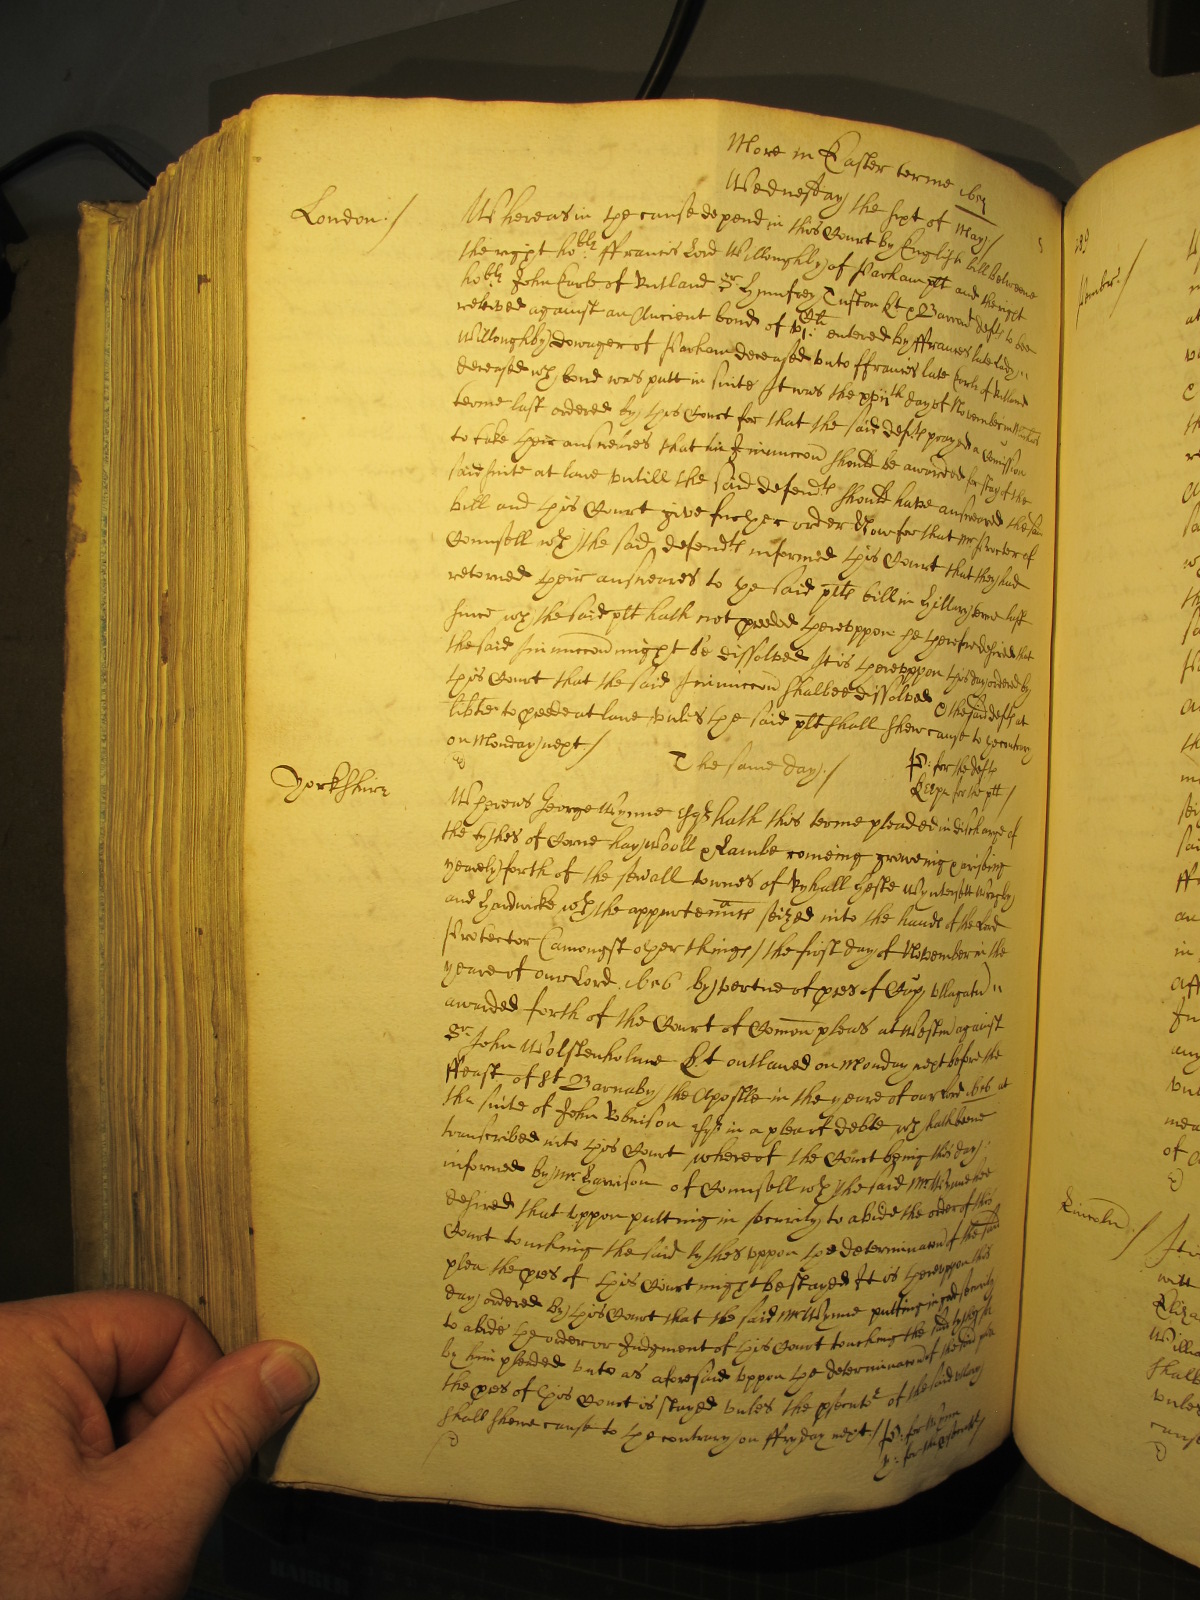 More in Easter terme 1657
Wednesday the sixt of May /
London. /
Whereas in the cause depend in this Court by English bill Betweene
the right ho:ble ffrancis Lord Willoughby of Parham plt and the right
ho:ble John Earle of Rutland Sr Humfrey Tufton kt & Barront defts to bee
releived against an Ancient bond of entered by ffrances late Lady
Willoughby dowager of Parham deceased unto ffrancis late Earle of Rutland
deceased wch bond was putt in suite It was the day of November in
terme last ordered by this Court for that the said defts prayed a Comission
to take their answeares that an Iniunccon should be awarded for stay of the
said suite at lawe untill the said defendts should have answered the said
bill and this Court give further order Now for that Mr Proctor of
Counsell wth the said defendts informed this Court that they had
returned their answeares to the said plts bill in Hillary terme last
since wch the said plt hath not pceeded thereuppon he therefore desired that
the said Iniunccon might be dissolved It is thereuppon this day ordered by
this Court that the said Iniunccon shalbee dissolved & the said defts at
libtie to pceede at lawe unles the said plt shall shew cause to ye contrary
on Monday next /
The same day. /
P: for the defts
for the plt /
Yorkshire
Whereas George Wynne Esqr hath this terme pleaded in discharge of
the tythes of Corne hay wooll & Lambe comeing groweing & ariseing
yearely forth of the sevall townes of Ryhall Heste Wyntersett
and Hardwicke wth the appurtennces seized into the hands of the Lord
Protector (amongst other things / the first day of November in the
yeare of our Lord .1656 by vertue of pces of Cap utlagatu)
awarded forth of the Court of Comon pleas at Westm against
Sr John Wolstenholme kt outlawed on Monday next before the
ffeast of St Barnaby the Apostle in the yeare of our Lord .1656 at
the suite of John Robinson Esqr in a plea of debte wch hath beene
transcribed into this Court whereof the Court being this day
informed by Mr Harrison of Counsell wth the said Mr Wynne hee
desired that uppon putting in security to abide the order of this
Court touching the said tythes uppon the determinacon of the said
plea the pces of this Court might be stayed It is thereuppon this
day ordered by this Court that the said Mr Wynne putting in good security
to abide the order or Judgment of this Court touching the said tythes
by him pleaded unto as aforesaid uppon the determinacon of the said plea
the pces of this Court is stayed unles the psecutr of the said utlary
shall shewe cause to the contrary on ffryday next / P: for Wynn
for the psecutr /
189
Lincoln. /